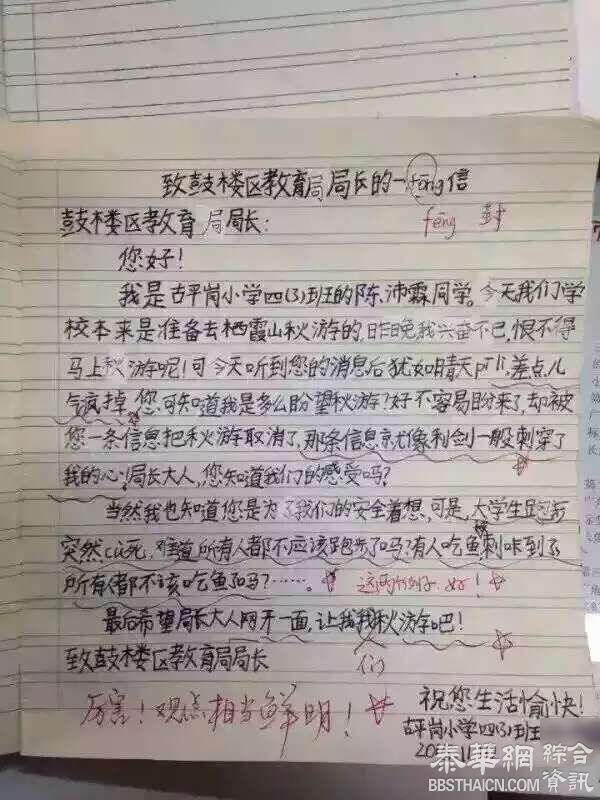 致鼓楼区教育局局长的一fēng信
fēng 封
鼓楼区教育局局长:
您好!
我是古平岗小学四(3)班的陈沛霖同学。今天我们学
校本来是准备去栖霞山秋游的,昨晚我兴奋不已,恨不得
马上秋游呢!可今天听到您的消息后犹如晴天pī lì,差点儿
气疯掉。您可知道我是多么盼望秋游?好不容易盼来了,却被
您一条信息把秋游取消了,那条信息京尤像利剑一般刺穿了
我的心!局长大人,您知道我们的感受吗?
当然我也知道您是为了我们的安全着想,可是,大学生跑步
突然cù死,难道所有人都不应该跑步了吗?有人吃鱼刺咔到了
所有人都不该吃鱼了吗?……。
这两个例子好!
最后希望局长大人网开一面,让我我秋游吧!
们
致鼓楼区教育局局长
厉害!观点相当鲜明!
祝您生活愉快!
古平岗小学四(3)班
泰華網 綜合資訊
BBSTHAICN.COM